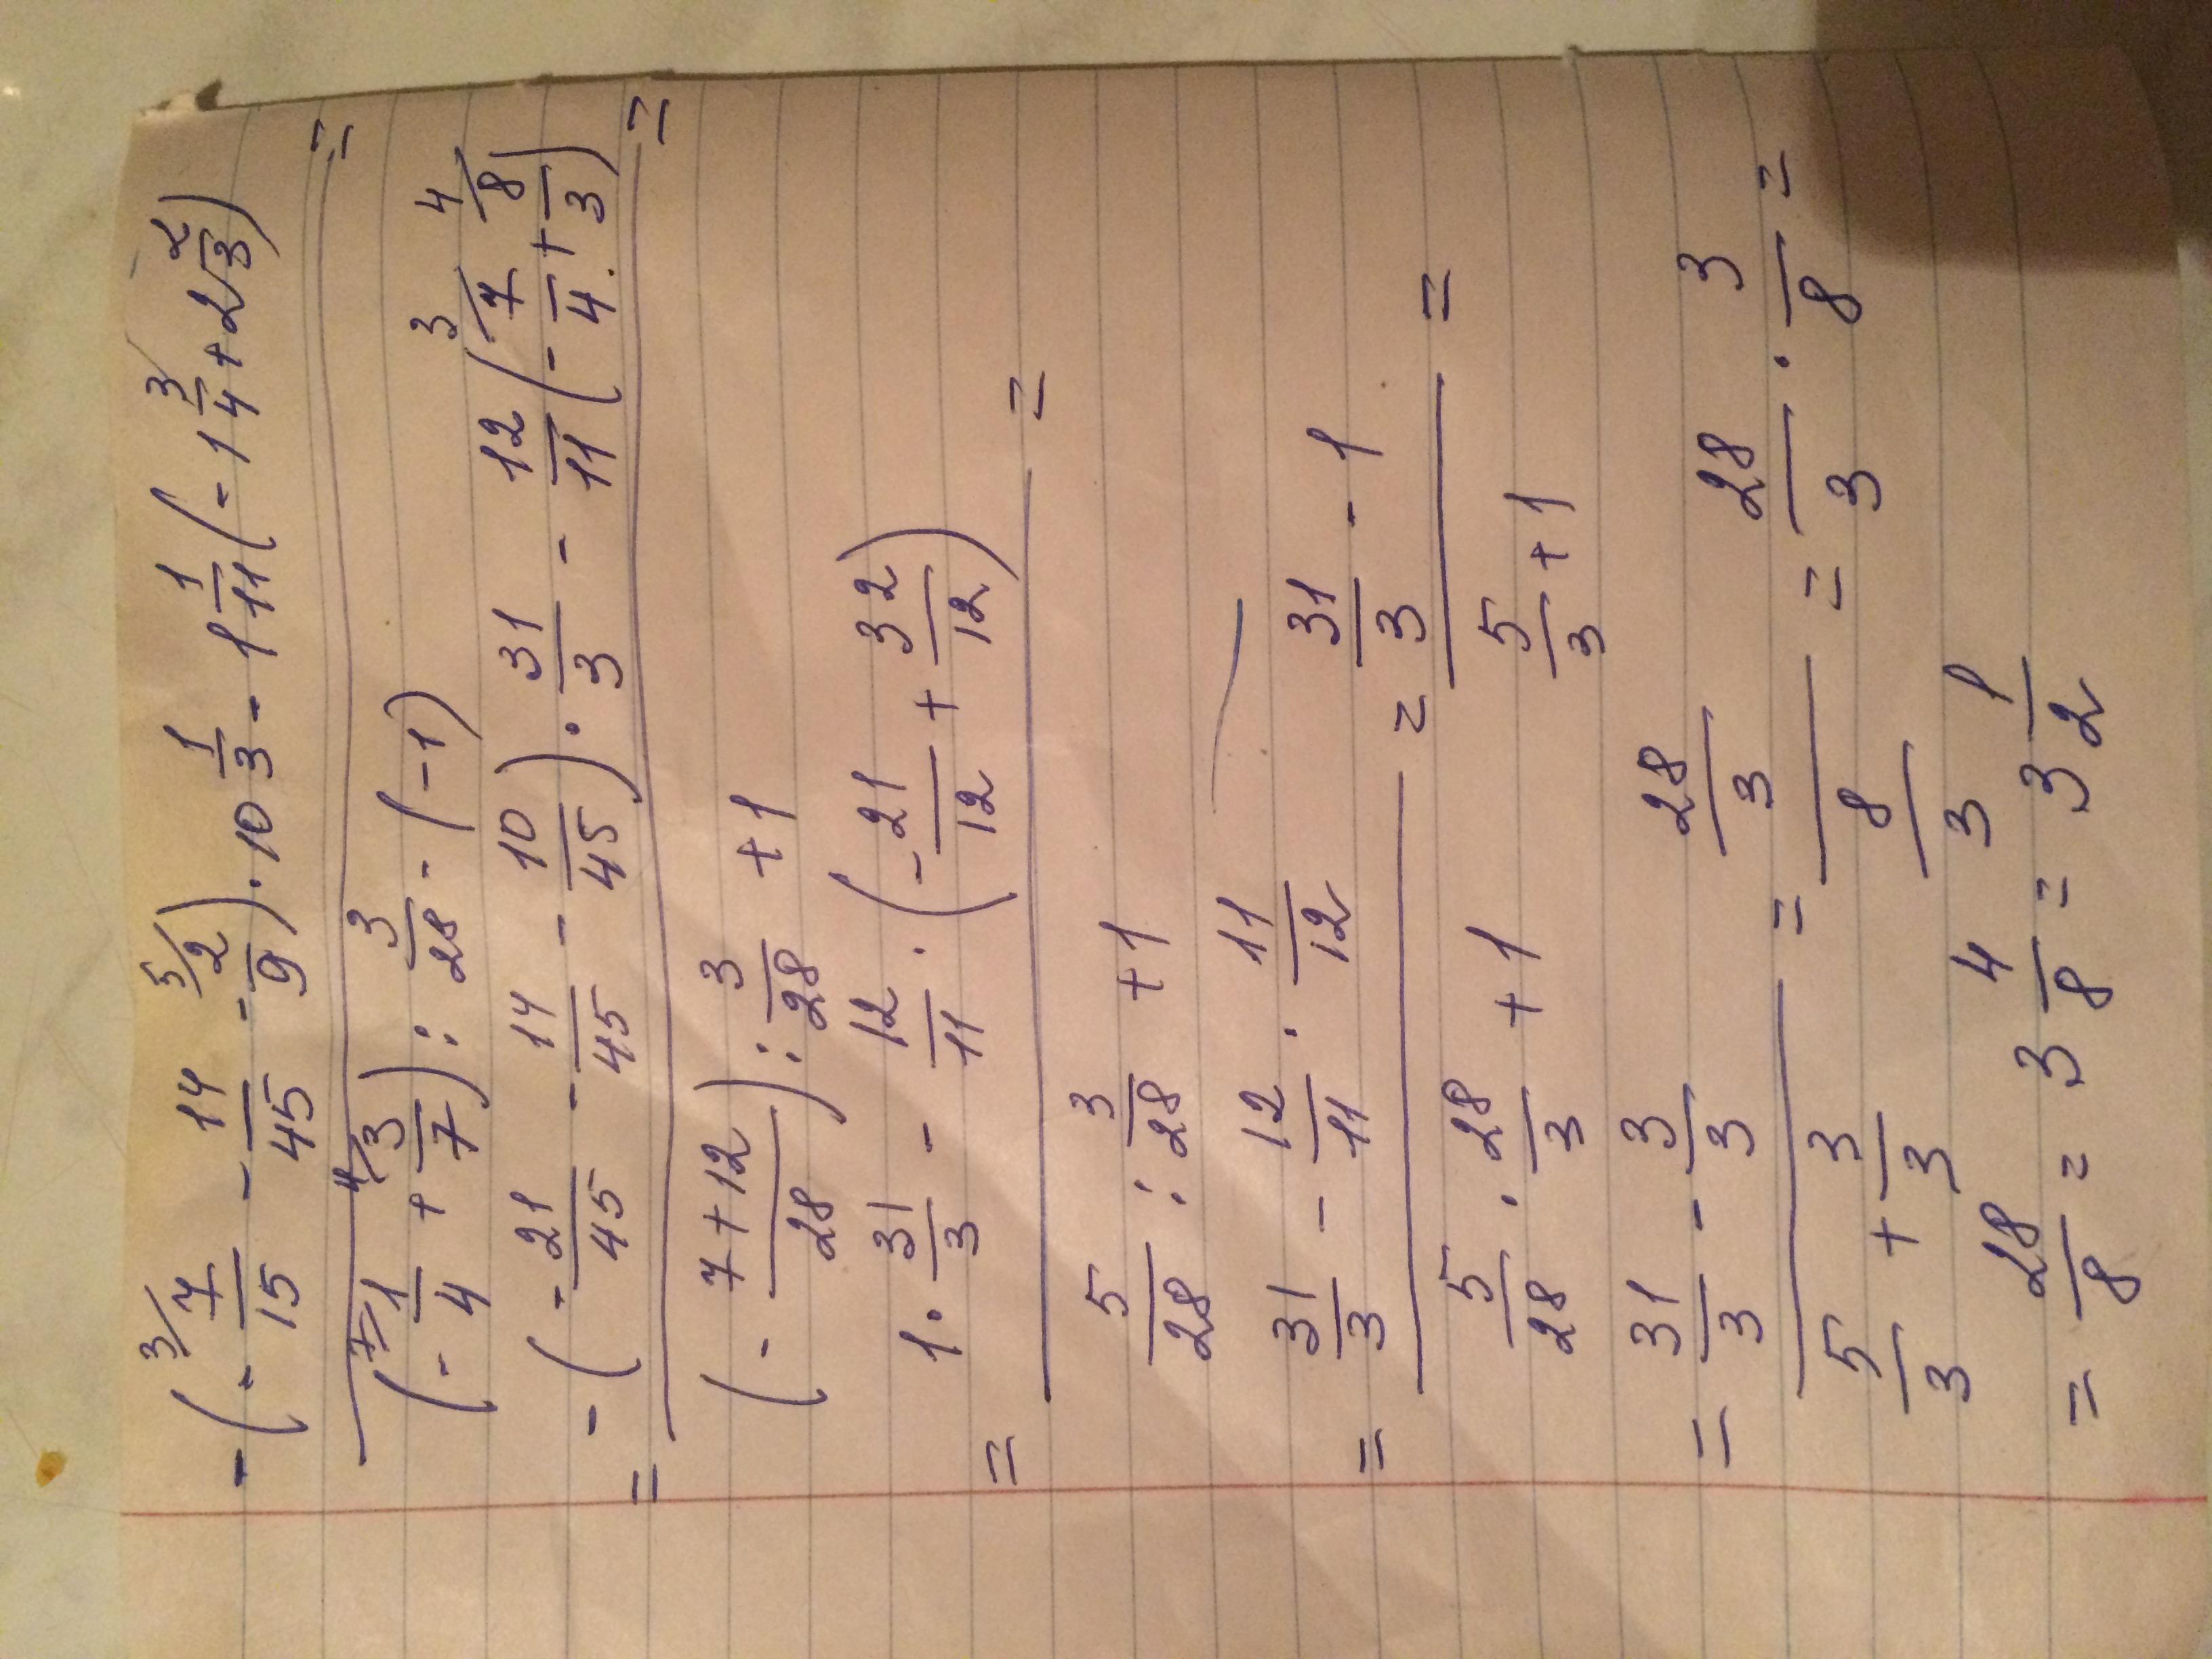 -(- ³⁄7/15 - 14/45 - ⁵⁄2/9) · 10 1/3 - 1 1/11 (- 1 ³⁄3/4 + 2 2/3)
=
(- ⁷⁄1/4 + ⁴⁄3/7) : 3/28 - (-1)
= -(- 21/45 - 14/45 - 10/45) · 31/3 - 12/11 (- ³⁄7/4 + ⁴⁄8/3) =
(- 7+12/28) : 3/28 + 1
= 1 · 31/3 - 12/11 · (- 21/12 + 32/12) =
5/28 : 3/28 + 1
= 31/3 - 12/11 · 11/12 = 31/3 - 1 =
5/28 · 28/3 + 1 5/3 + 1
= 31/3 - 3/3 = 28/3 = 28/3 · 3/8 =
5/3 + 3/3 8/3
= 28/8 = 3 4/8 = 3 1/2